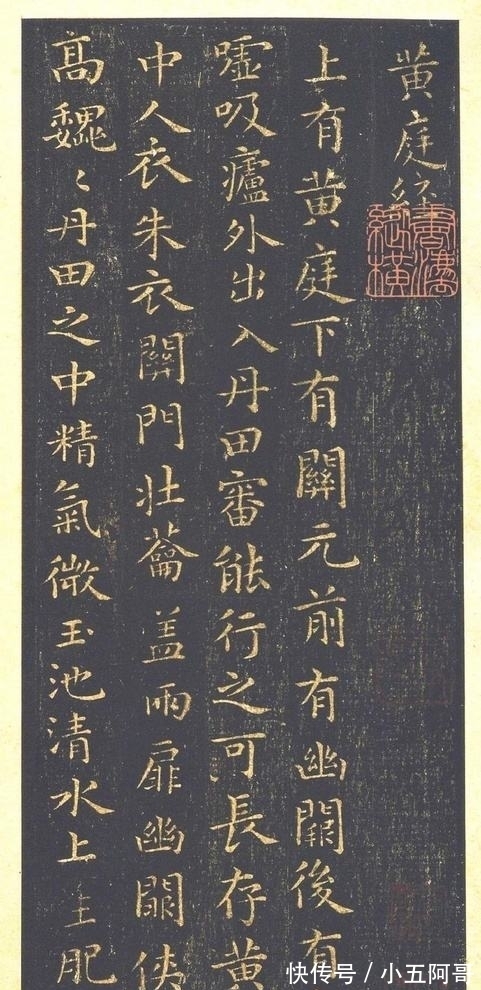 黄庭經
上有黄庭下有關元前有幽闕後有
嘘吸廬外出入丹田審能行之可長存黄
中人衣朱衣關門壯蘥盖兩扉幽闕俠
高魏〻丹田之中精氣微玉池清水上生肥
快传号/小五阿哥